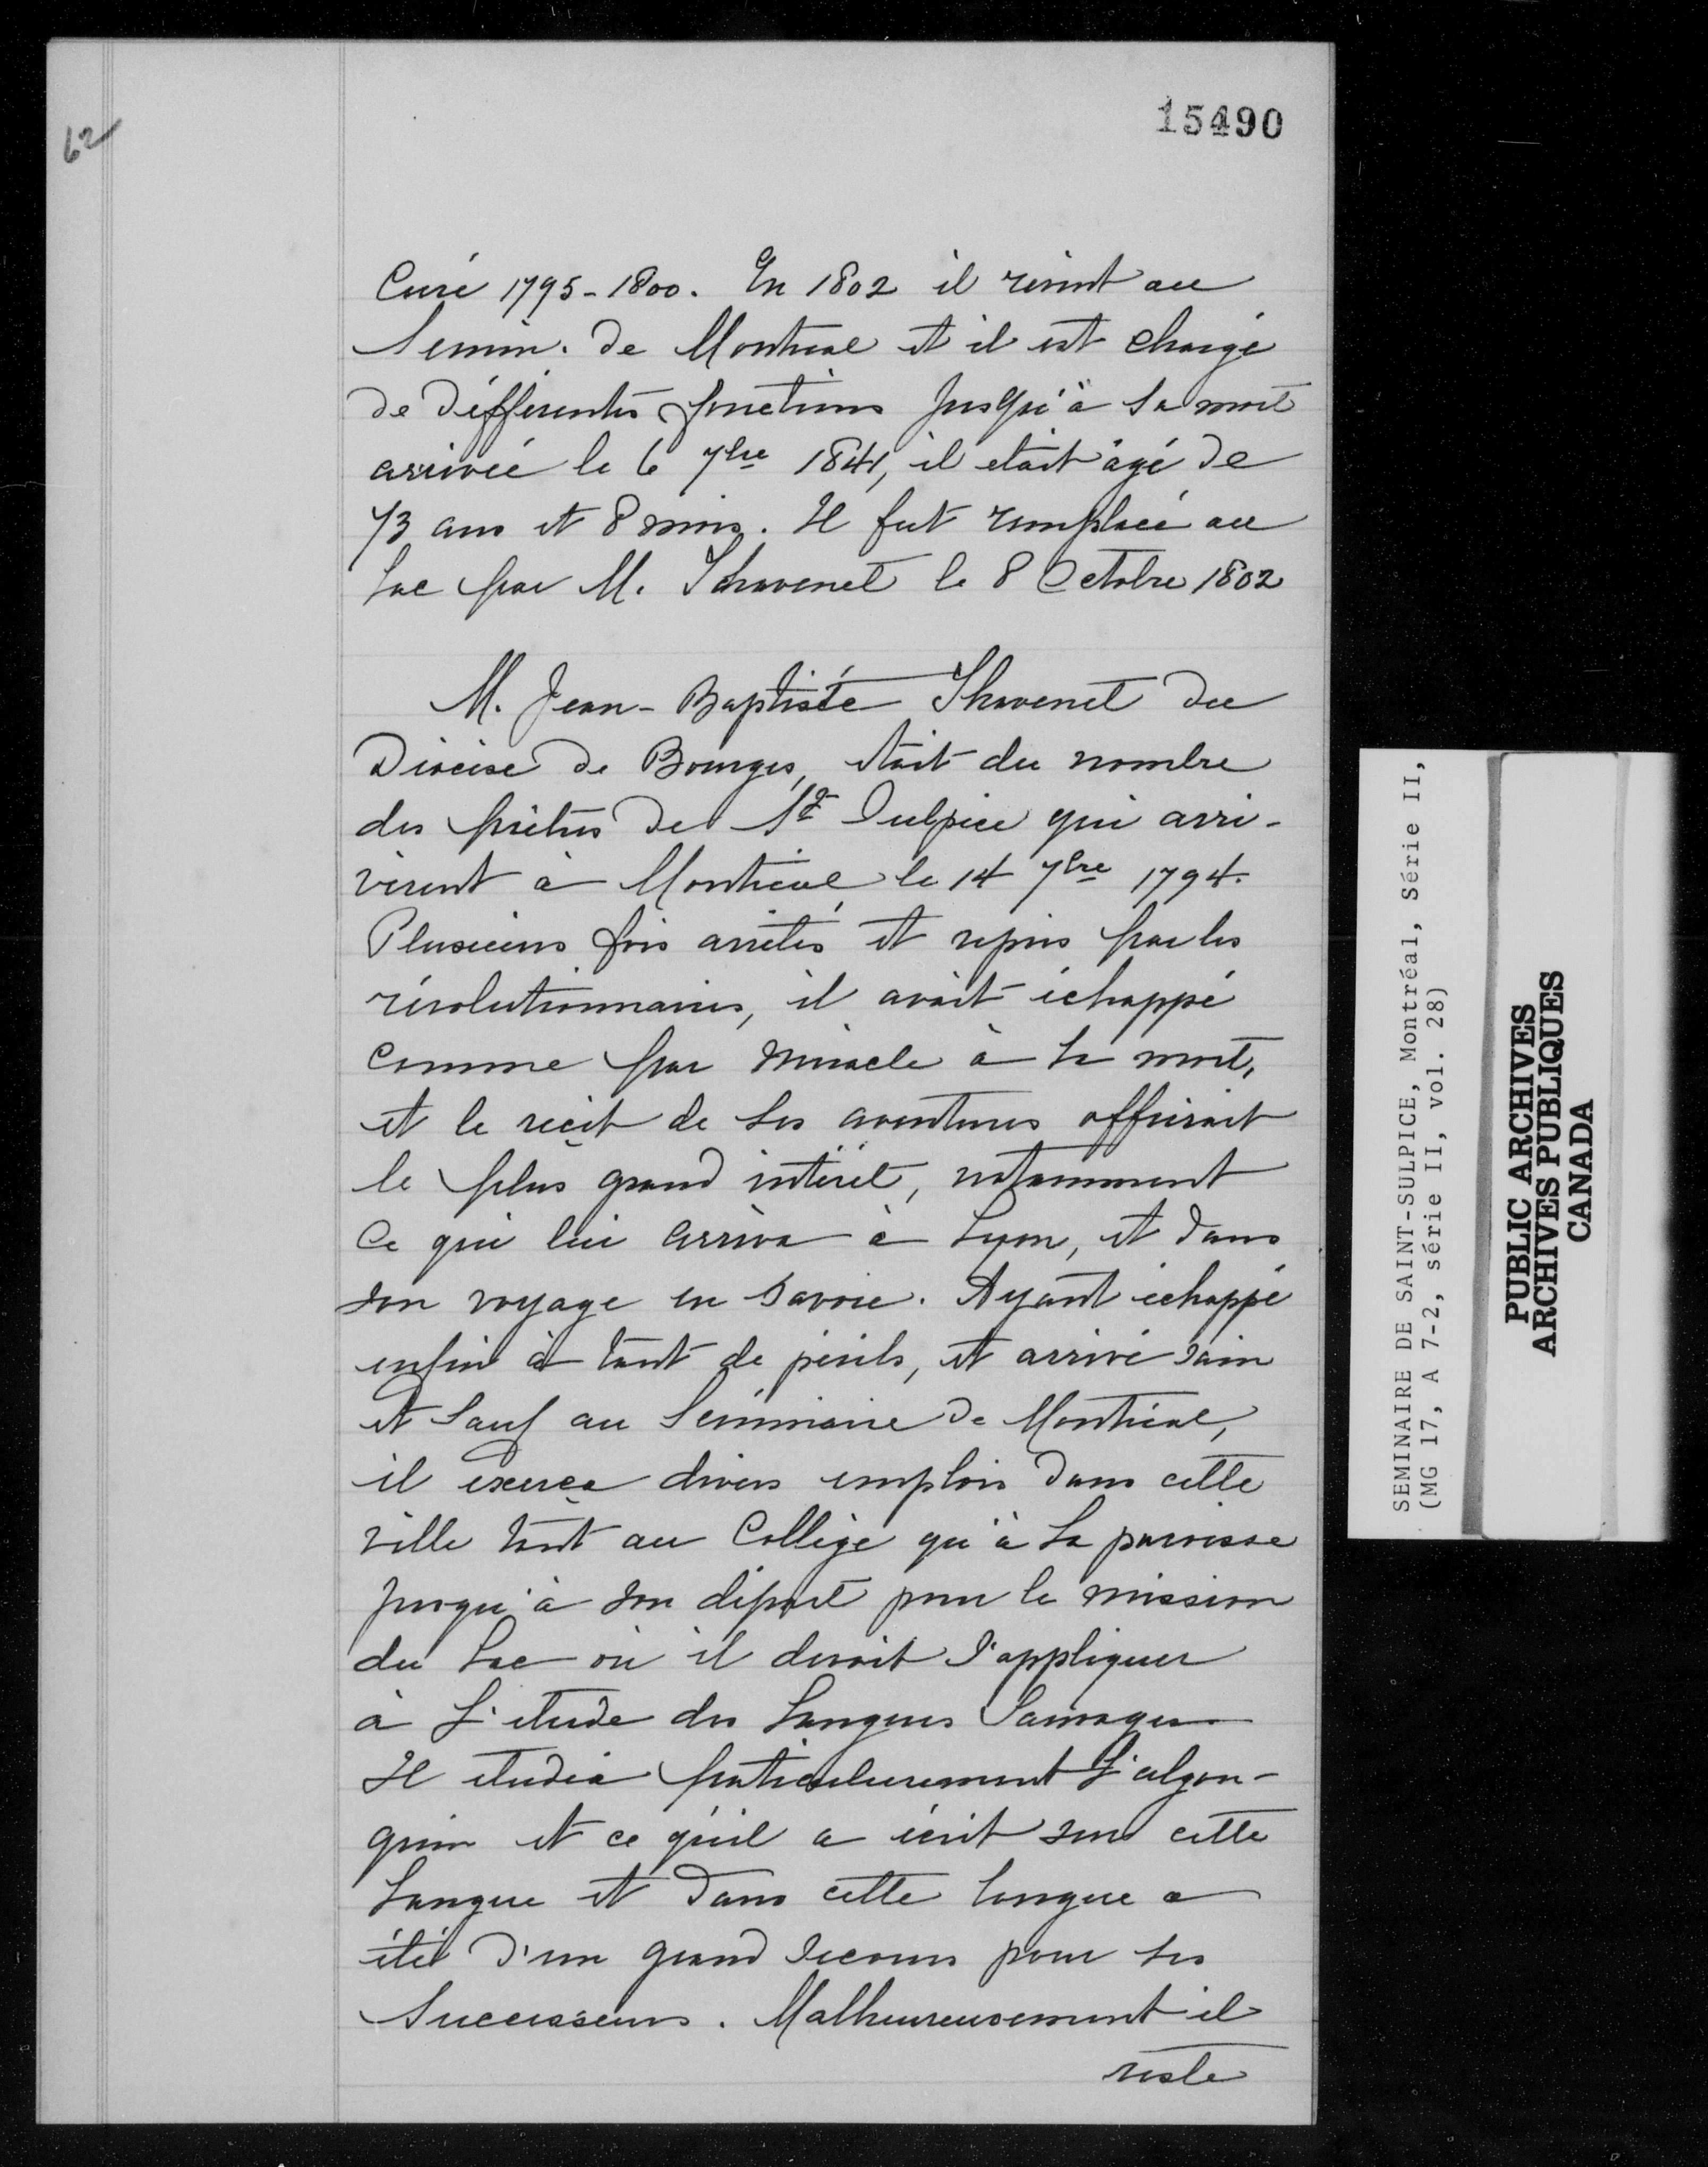 62
15490
Curé 1795-1800. En 1802 il revint au
Semin. de Montreal et il est chargé
de différentes fonctions jusqu'à sa mort
arrivée le 6 7bre 1841, il était âgé de
73 ans et 8 mois. Il fut remplacé au
Lac par M. Thavenet le 8 Octobre 1802
M. Jean-Baptiste Thavenet du
Diocèse de Bourges, était du nombre
des prêtres de St Sulpice qui arri-
vèrent à Montréal le 14 7bre 1794.
Plusieurs fois arrêtés et repris par les
révolutionnaires, il avait échappé
comme par miracle à la mort,
et le récit de ses aventures offrirait
le plus grand intérêt, notamment
ce qui lui arriva à Lyon, et dans
son voyage en Savoie. Ayant échappé
enfin à tant de périls, et arrivé sain
et sauf au Séminaire de Montréal,
il exerça divers emplois dans cette
ville tant au Collège qu'à la paroisse
jusqu'à son départ pour la mission
du Lac où il devait s'appliquer
à l'étude des Langues Sauvages
Il étudia particulièrement l'algon-
quin et ce qu'il a écrit sur cette
Langue et dans cette langue a
été d'un grand secours pour ses
Successeurs. Malheureusement il
reste
SEMINAIRE DE SAINT-SULPICE, Montréal, Série II,
(MG 17, A 7-2, série II, vol. 28)
PUBLIC ARCHIVES
ARCHIVES PUBLIQUES
CANADA